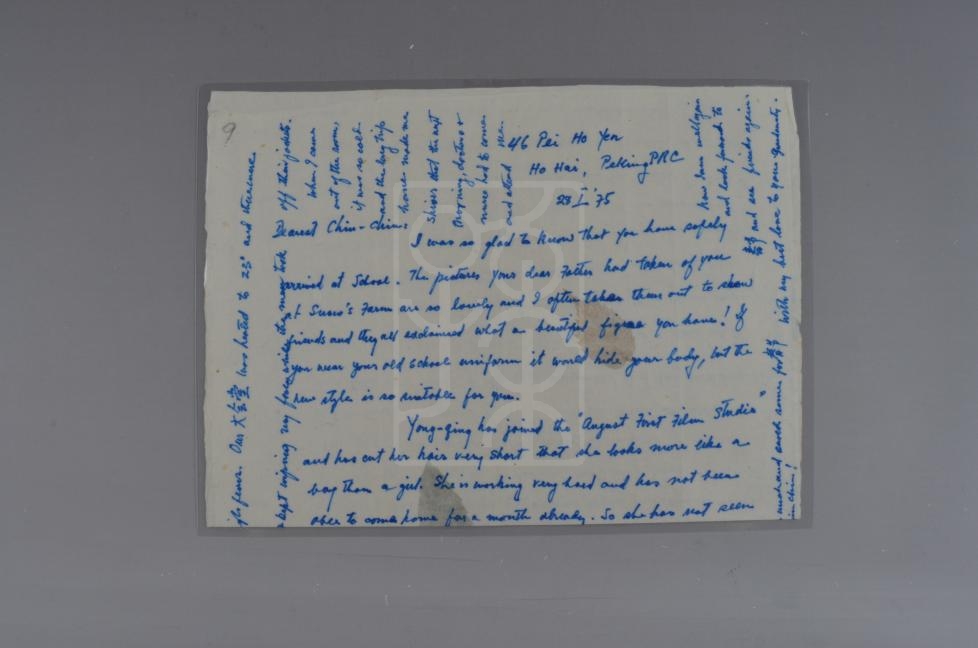 9
46 Pei Ho Yen
Ho Hai, Peking PRC
23 I '75
Dearest Chin-Chin:
I was so glad to know that you have safely
arrived at School. The pictures your dear Father had taken of you
at Susio's Farm are so lovely and I often taken them out to show
friends and they all exclaimed what a beautiful figure you have! If
you wear your old school uniform it would hide your body, but the
new style is so suitable for you.
Yong-ging has joined the "August First Film Studio"
and has cut her hair very short that she looks more like a
boy than a girl. She is working very hard and has not been
able to come home for a month already. So she has not seen
fever. Our 大会堂 was heated to 23° and there were
kept wiping my face while the men took
off their jackets.
when I came
out of the room,
it was so cold
and the long trip
home made me
shiver that the next
morning, doctor &
nurse had to come
and attend me.
now I am well again
and look forward to
and see friends again.
with my best love to your Grandaunty.
and saved some for